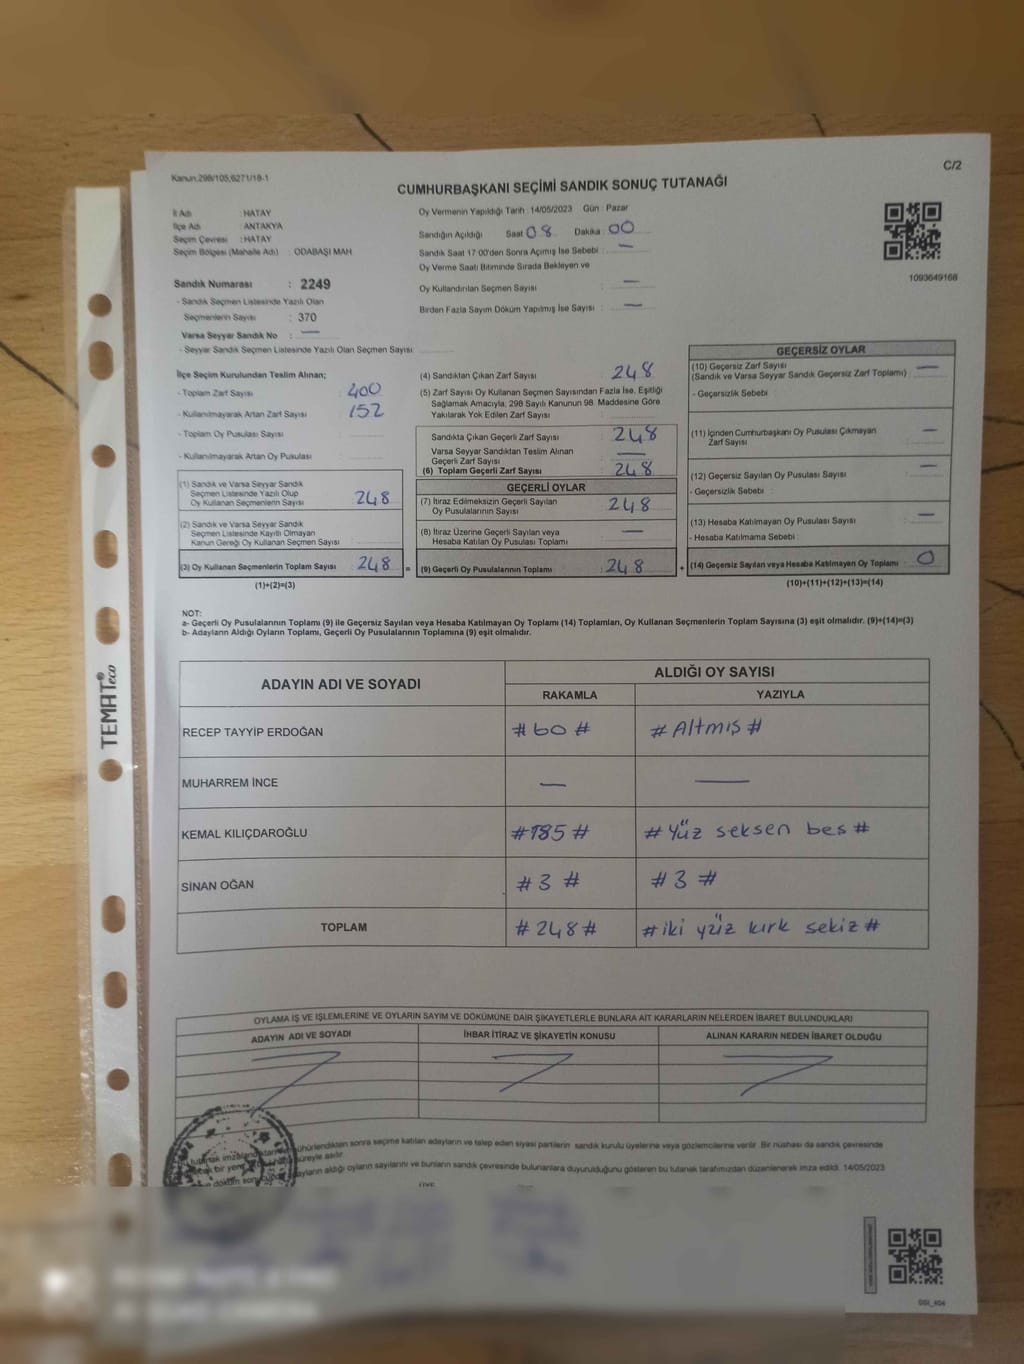 Kanun;298/105,6271/18-1
C/2
CUMHURBAŞKANI SEÇİMİ SANDIK SONUÇ TUTANAĞI
İl Adı : HATAY
İlçe Adı : ANTAKYA
Seçim Çevresi : HATAY
Seçim Bölgesi (Mahalle Adı) : ODABAŞI MAH
Sandık Numarası : 2249
- Sandık Seçmen Listesinde Yazılı Olan
Seçmenlerin Sayısı : 370
Varsa Seyyar Sandık No : —
- Seyyar Sandık Seçmen Listesinde Yazılı Olan Seçmen Sayısı
Oy Vermenin Yapıldığı Tarih : 14/05/2023 Gün : Pazar
Sandığın Açıldığı Saat 08 Dakika : 00
Sandık Saat 17:00'den Sonra Açımış İse Sebebi : —
Oy Verme Saati Bitiminde Sırada Bekleyen ve
Oy Kullandırılan Seçmen Sayısı : —
Birden Fazla Sayım Döküm Yapılmış İse Sayısı : —
1093649168
İlçe Seçim Kurulundan Teslim Alınan;
- Toplam Zarf Sayısı : 400
- Kullanılmayarak Artan Zarf Sayısı : 152
- Toplam Oy Pusulası Sayısı :
- Kullanılmayarak Artan Oy Pusulası :
(1) Sandık ve Varsa Seyyar Sandık
Seçmen Listesinde Yazılı Olup
Oy Kullanan Seçmenlerin Sayısı : 248
(2) Sandık ve Varsa Seyyar Sandık
Seçmen Listesinde Kayıtlı Olmayan
Kanun Gereği Oy Kullanan Seçmen Sayısı :
(3) Oy Kullanan Seçmenlerin Toplam Sayısı : 248 =
(1)+(2)=(3)
(4) Sandıktan Çıkan Zarf Sayısı : 248
(5) Zarf Sayısı Oy Kullanan Seçmen Sayısından Fazla İse, Eşitliği
Sağlamak Amacıyla, 298 Sayılı Kanunun 98. Maddesine Göre
Yakılarak Yok Edilen Zarf Sayısı :
Sandıkta Çıkan Geçerli Zarf Sayısı : 248
Varsa Seyyar Sandıktan Teslim Alınan
Geçerli Zarf Sayısı : —
(6) Toplam Geçerli Zarf Sayısı : 248
GEÇERLİ OYLAR
(7) İtiraz Edilmeksizin Geçerli Sayılan
Oy Pusulalarının Sayısı : 248
(8) İtiraz Üzerine Geçerli Sayılan veya
Hesaba Katılan Oy Pusulası Toplamı : —
(9) Geçerli Oy Pusulalarının Toplamı : 248 +
GEÇERSİZ OYLAR
(10) Geçersiz Zarf Sayısı
(Sandık ve Varsa Seyyar Sandık Geçersiz Zarf Toplamı) : —
- Geçersizlik Sebebi :
(11) İçinden Cumhurbaşkanı Oy Pusulası Çıkmayan
Zarf Sayısı : —
(12) Geçersiz Sayılan Oy Pusulası Sayısı : —
- Geçersizlik Sebebi :
(13) Hesaba Katılmayan Oy Pusulası Sayısı : —
- Hesaba Katılmama Sebebi :
(14) Geçersiz Sayılan veya Hesaba Katılmayan Oy Toplamı : 0
(10)+(11)+(12)+(13)=(14)
NOT:
a- Geçerli Oy Pusulalarının Toplamı (9) ile Geçersiz Sayılan veya Hesaba Katılmayan Oy Toplamı (14) Toplamları, Oy Kullanan Seçmenlerin Toplam Sayısına (3) eşit olmalıdır. (9)+(14)=(3)
b- Adayların Aldığı Oyların Toplamı, Geçerli Oy Pusulalarının Toplamına (9) eşit olmalıdır.
ADAYIN ADI VE SOYADI ALDIĞI OY SAYISI
RAKAMLA YAZIYLA
RECEP TAYYİP ERDOĞAN #60# #Altmış#
MUHARREM İNCE — —
KEMAL KILIÇDAROĞLU #185# #Yüz seksen beş#
SİNAN OĞAN #3# #3#
TOPLAM #248# #iki yüz kırk sekiz#
OYLAMA İŞ VE İŞLEMLERİNE VE OYLARIN SAYIM VE DÖKÜMÜNE DAİR ŞİKAYETLERLE BUNLARA AİT KARARLARIN NELERDEN İBARET BULUNDUKLARI
ADAYIN ADI VE SOYADI İHBAR İTİRAZ VE ŞİKAYETİN KONUSU ALINAN KARARIN NEDEN İBARET OLDUĞU
sonra seçime katılan adayların ve talep eden siyasi partilerin sandık kurulu üyelerine veya gözlemcilerine verilir. Bir nüshası da sandık çevresinde
bir yere süreyle asılır.
adayların aldığı oyların sayılarını ve bunların sandık çevresinde bulunanlara duyurulduğunu gösteren bu tutanak tarafımızdan düzenlenerek imza edildi. 14/05/2023
TEMAT® eco